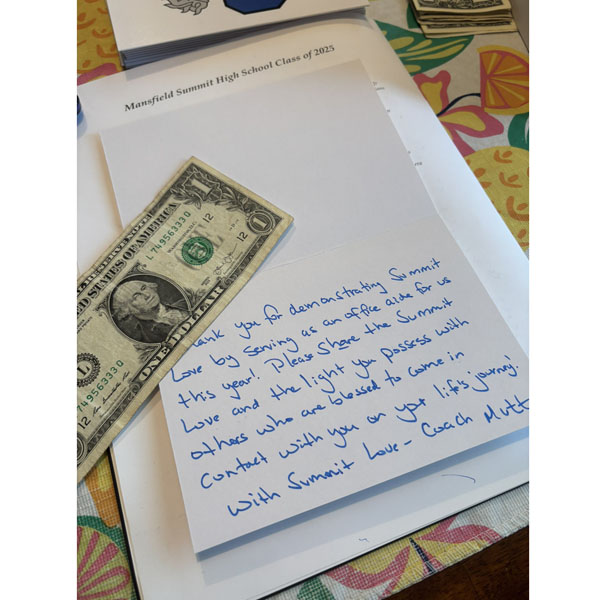 Mansfield Summit High School Class of 2025
RESERVE NOTE
D STATES OF AMERICA
L 74956333 Q
12
12
1
1
L
74956333 Q
12
ONE DOLLAR
hank you for demonstrating Summit
Love by serving as an office aide for us
this year! Please Share the Summit
Love and the light you possess with
others who are blessed to come in
contact with you on your life's journey!
With Summit Love- Coach Mutt